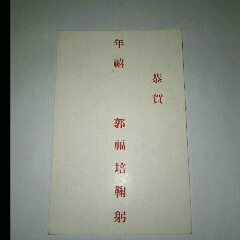 恭賀
年禧
郭福培鞠躬